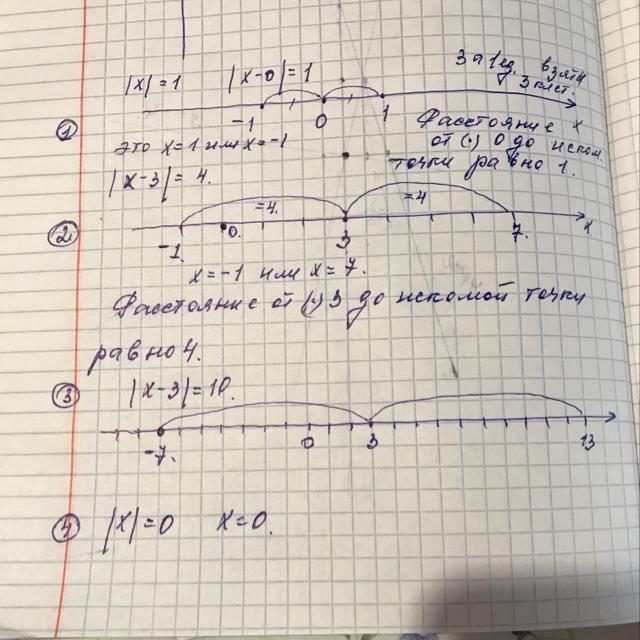 |x|=1 |x-0|=1 За 1 ед. взяты
3 клет.
① -1 0 1 x
Расстояние
это x=1 или x=-1 от (·) 0 до иском.
точки равно 1.
|x-3|=4.
② =4. =4
-1 0. 3 7. x
x=-1 или x=7.
Расстояние от (·) 3 до искомой точки
равно 4.
③ |x-3|=10.
-7. 0 3 13
④ |x|=0 x=0.